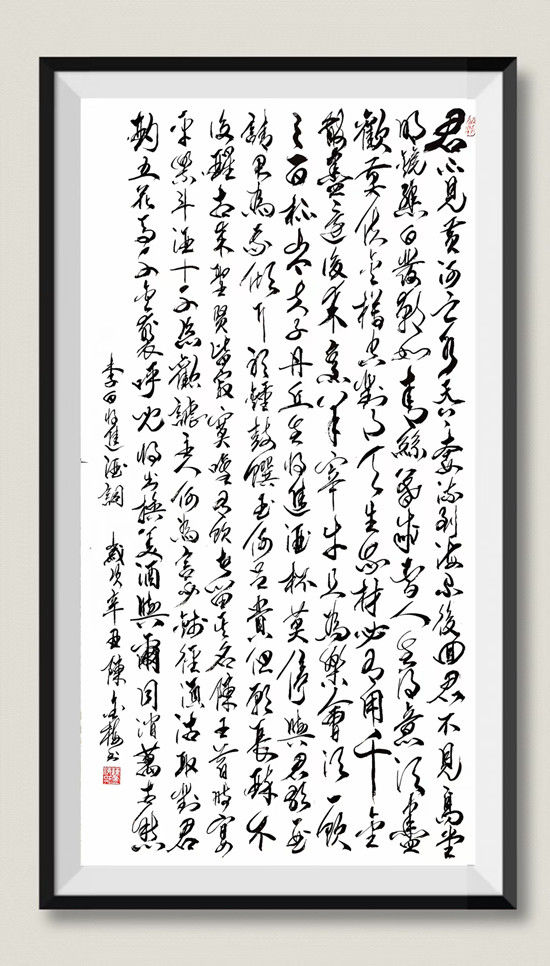 君不見黃河之水天上來奔流到海不復回君不見高堂
明鏡悲白髮朝如青絲暮成雪人生得意須盡
歡莫使金樽空對月天生我材必有用千金
散盡還復來烹羊宰牛且為樂會須一飲
三百杯岑夫子丹丘生將進酒杯莫停與君歌一曲
請君為我傾耳聽鐘鼓饌玉何足貴但願長醉不
復醒古來聖賢皆寂寞唯有飲者留其名陳王昔時宴
平樂斗酒十千恣歡謔主人何為言少錢徑須沽取對君
酌五花馬千金裘呼兒將出換美酒與爾同消萬古愁
李白將進酒詞 歲次辛丑陳